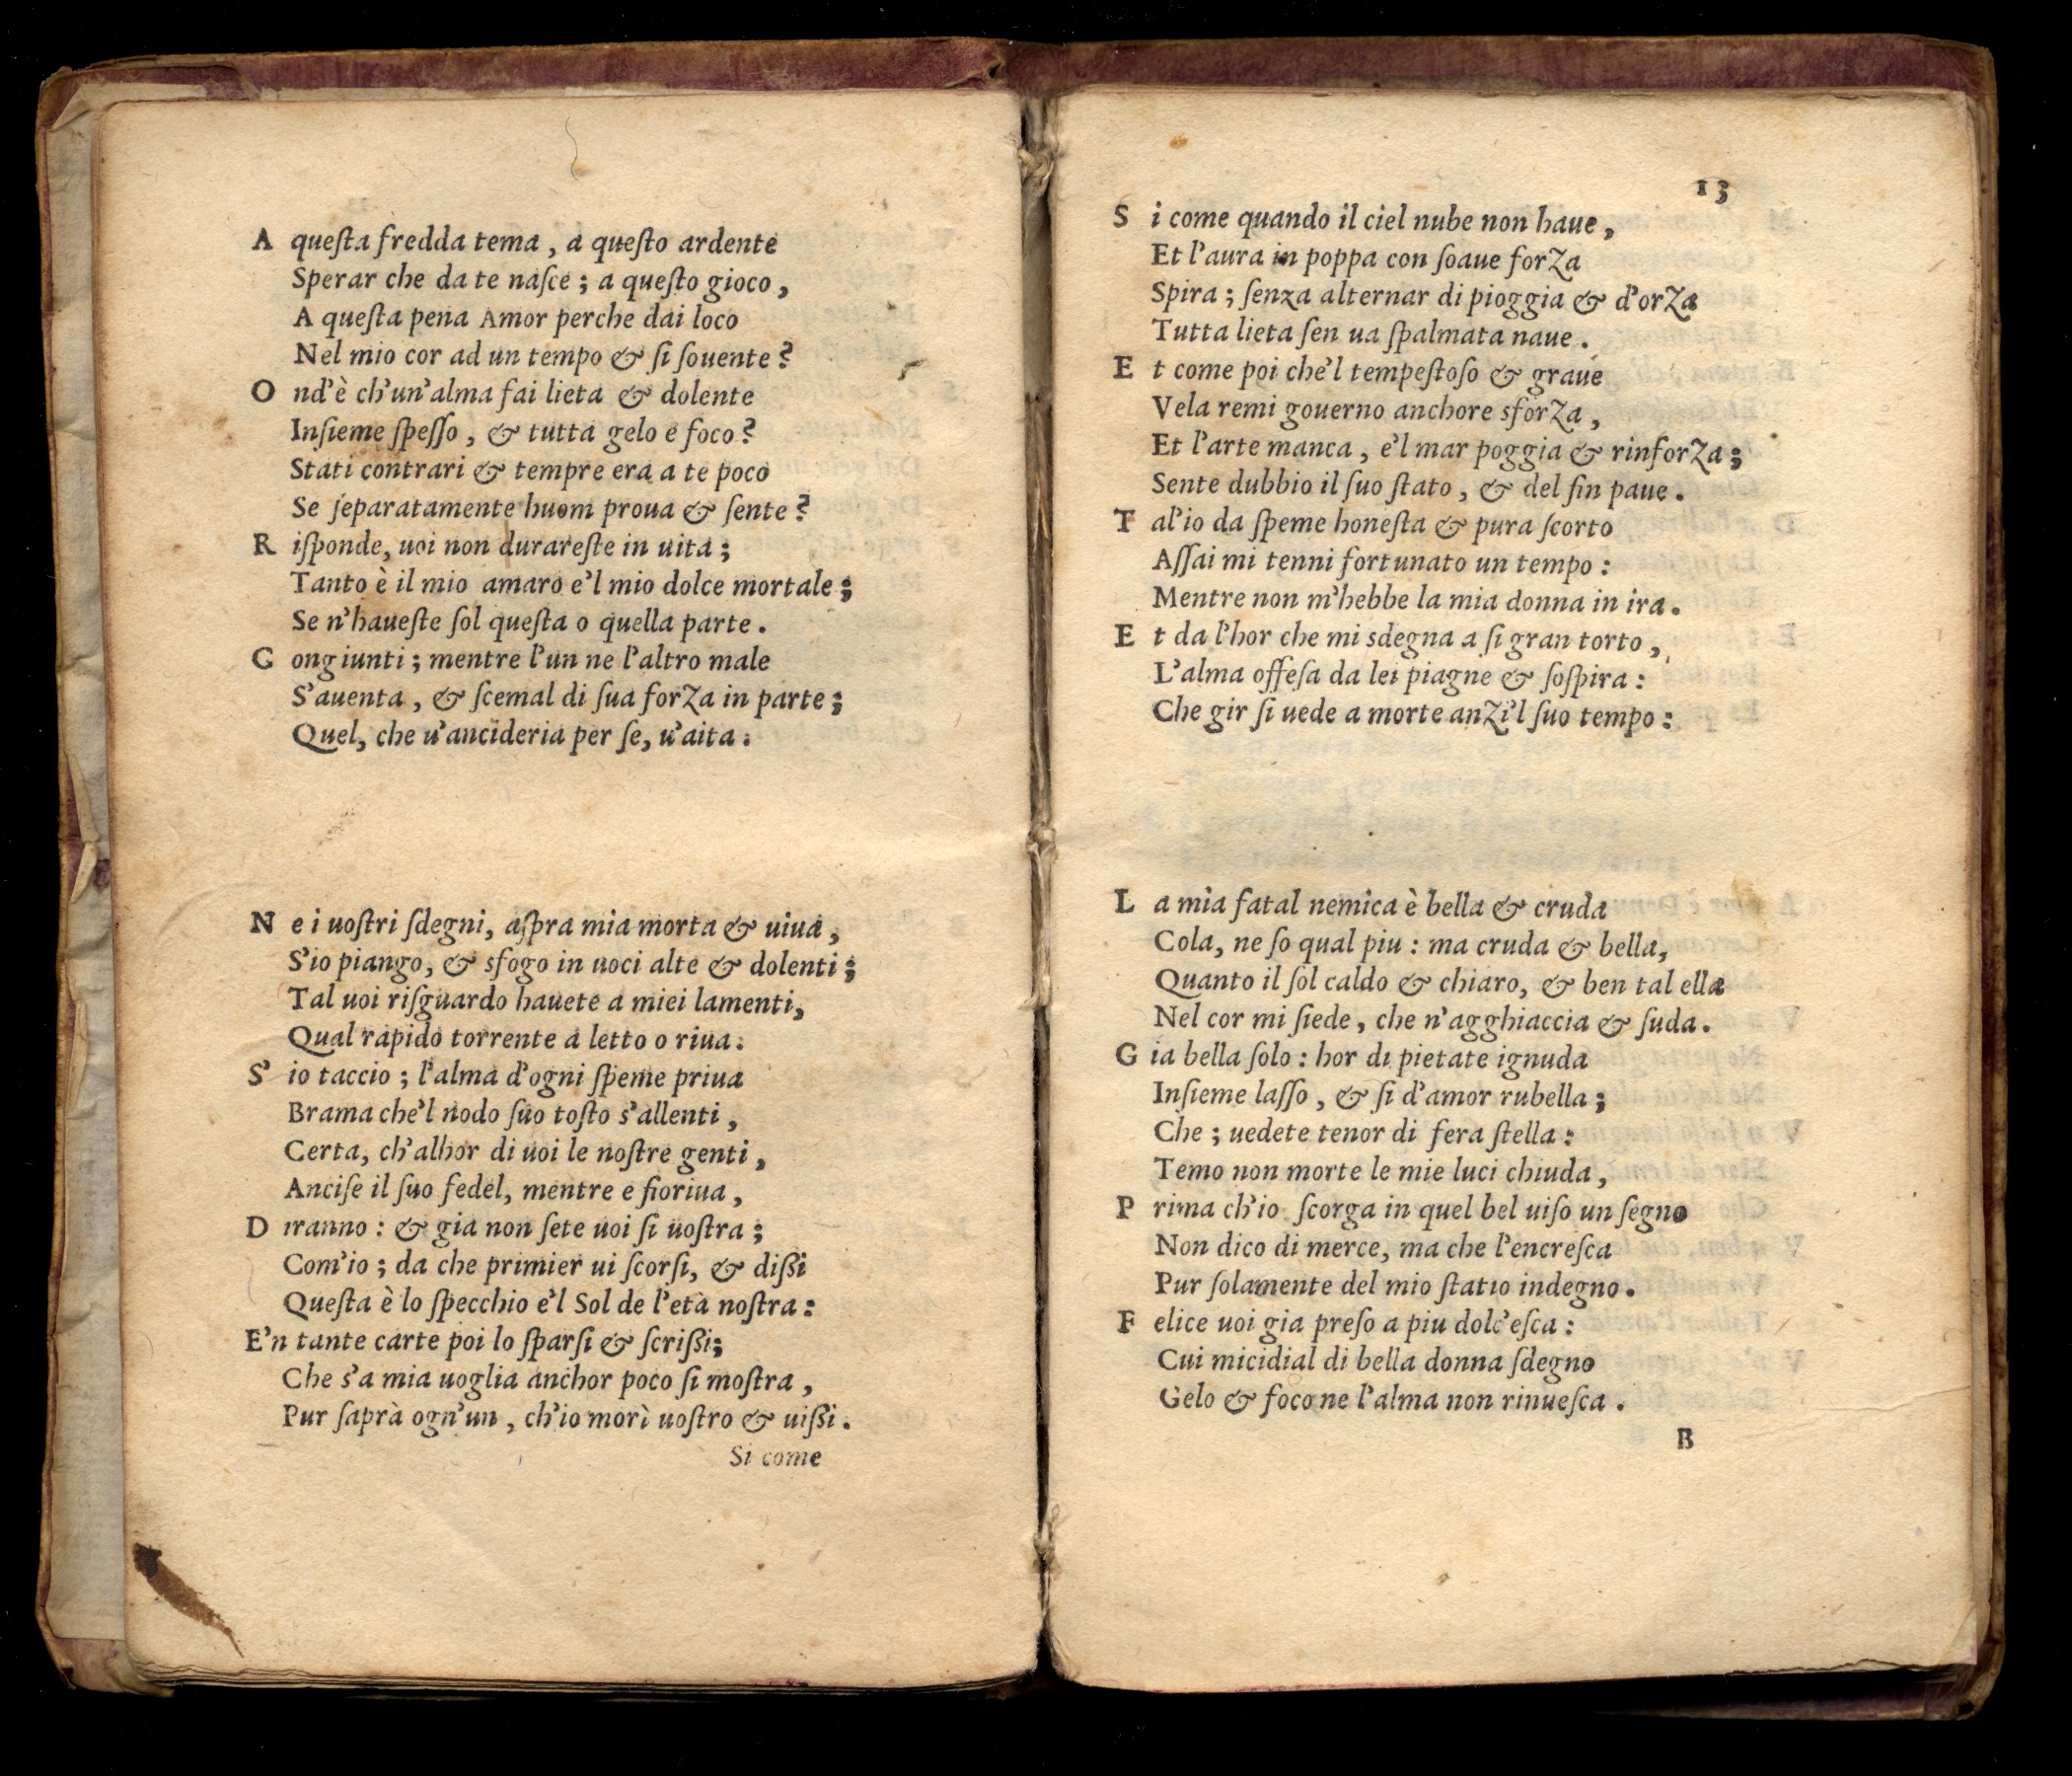 A questa fredda tema, a questo ardente
Sperar che da te nasce; a questo gioco,
A questa pena Amor perche dai loco
Nel mio cor ad un tempo & si souente?
Ond'è ch'un'alma fai lieta & dolente
Insieme spesso, & tutta gelo e foco?
Stati contrari & tempre era a te poco
Se separatamente huom proua & sente?
Risponde, uoi non durareste in uita;
Tanto è il mio amaro e'l mio dolce mortale;
Se n'haueste sol questa o quella parte.
Congiunti; mentre l'un ne l'altro male
S'auenta, & scemal di sua forza in parte;
Quel, che u'ancideria per se, u'aita.
Ne i uostri sdegni, aspra mia morta & uiua,
S'io piango, & sfogo in uoci alte & dolenti;
Tal uoi risguardo hauete a miei lamenti,
Qual rapido torrente a letto o riua.
S'io taccio; l'alma d'ogni speme priua
Brama che'l nodo suo tosto s'allenti,
Certa, ch'alhor di uoi le nostre genti,
Ancise il suo fedel, mentre e fioriua,
Diranno: & gia non sete uoi si uostra;
Com'io; da che primier ui scorsi, & dissi
Questa è lo specchio e'l Sol de l'età nostra:
E'n tante carte poi lo sparsi & scrissi;
Che s'a mia uoglia anchor poco si mostra,
Pur saprà ogn'un, ch'io morì uostro & uissi.
Si come
13
Si come quando il ciel nube non haue,
Et l'aura in poppa con soaue forza
Spira; senza alternar di pioggia & d'orza
Tutta lieta sen ua spalmata naue.
Et come poi che'l tempestoso & graue
Vela remi gouerno anchore sforza,
Et l'arte manca, e'l mar poggia & rinforza;
Sente dubbio il suo stato, & del fin paue.
Tal'io da speme honesta & pura scorto
Assai mi tenni fortunato un tempo:
Mentre non m'hebbe la mia donna in ira.
Et da l'hor che mi sdegna a si gran torto,
L'alma offesa da lei piagne & sospira:
Che gir si uede a morte anzi'l suo tempo:
La mia fatal nemica è bella & cruda
Cola, ne so qual piu: ma cruda & bella,
Quanto il sol caldo & chiaro, & ben tal ella
Nel cor mi siede, che n'agghiaccia & suda.
Gia bella solo: hor di pietate ignuda
Insieme lasso, & si d'amor rubella;
Che; uedete tenor di fera stella:
Temo non morte le mie luci chiuda,
Prima ch'io scorga in quel bel uiso un segno
Non dico di merce, ma che l'encresca
Pur solamente del mio statio indegno.
Felice uoi gia preso a piu dolc'esca:
Cui micidial di bella donna sdegno
Gelo & foco ne l'alma non rinuesca.
B